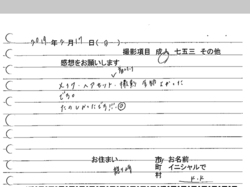 2019年9月17日(○)
撮影項目 成人 七五三 その他
感想をお願いします
メイク・ヘアセット・撮影 全部よかった
です。
たのしかったです。
お住まい 市 お名前
町 イニシャルで
村 K.K